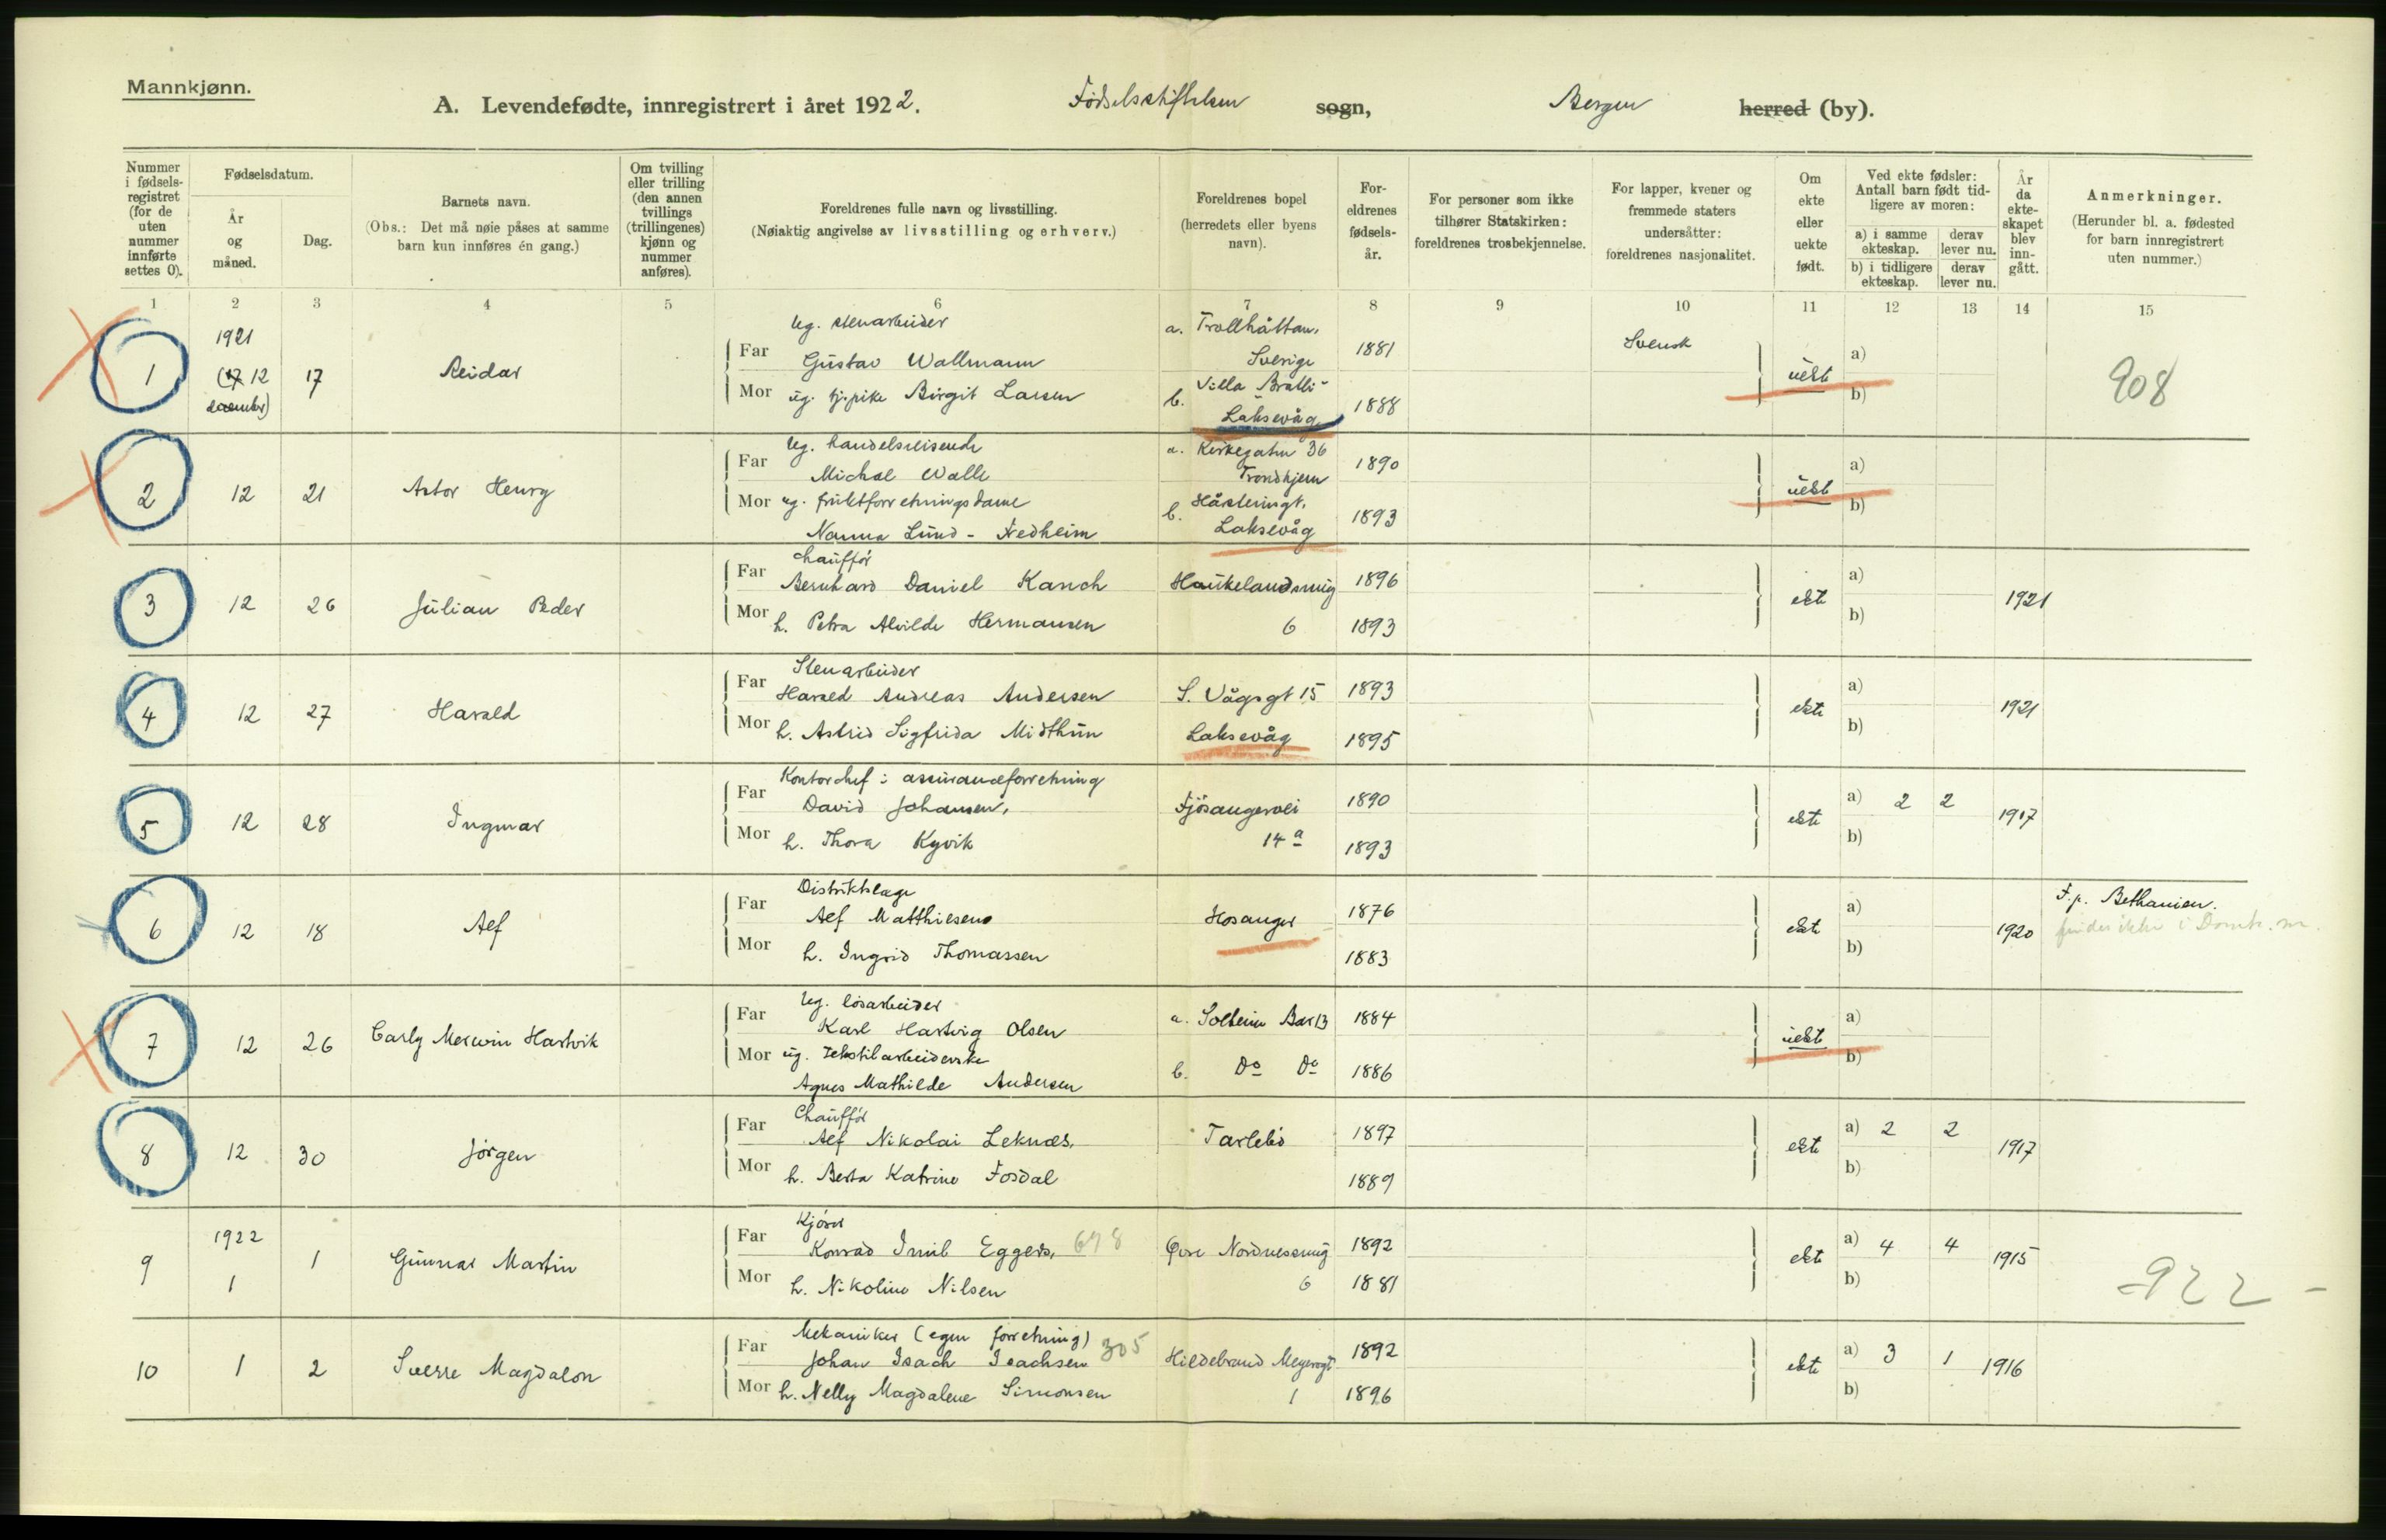 Mannkjønn.
A. Levendefødte, innregistrert i året 1922. Fødselsstiftelsen sogn, Bergen herred (by).
Nummer i fødselsregistret (for de uten nummer innførte settes 0).
Fødselsdatum.
År og måned.
Dag.
Barnets navn.
(Obs.: Det må nøie påses at samme barn kun innføres én gang.)
Om tvilling eller trilling (den annen tvillings (trillingenes) kjønn og nummer anføres).
Foreldrenes fulle navn og livsstilling.
(Nøiaktig angivelse av livsstilling og erhverv.)
Foreldrenes bopel (herredets eller byens navn).
Foreldrenes fødselsår.
For personer som ikke tilhører Statskirken: foreldrenes trosbekjennelse.
For lapper, kvener og fremmede staters undersåtter: foreldrenes nasjonalitet.
Om ekte eller uekte født.
Ved ekte fødsler: Antall barn født tidligere av moren:
a) i samme ekteskap. derav lever nu.
b) i tidligere ekteskap. derav lever nu.
År da ekteskapet blev inngått.
Anmerkninger.
(Herunder bl. a. fødested for barn innregistrert uten nummer.)
1 2 3 4 5 6 7 8 9 10 11 12 13 14 15
1 1921 12 17 Reidar
Far ug. stenarbeider
Gustav Wallmann a. Trollhättan, Sverige 1881 Svensk
Mor ug. tj.pike Birgit Larsen b. Villa Bratli Laksevåg 1888
uekte a) b) 908
2 12 21 Astor Henry
Far ug. handelsreisende
Michal Walle a. Kirkegaten 36 Trondhjem 1890
Mor ug. fruktforretningsdame
Nanna Lund - Nedheim b. Laksevåg 1893
uekte a) b)
3 12 26 Julian Peder
Far chauffør
Bernhard Daniel Kanch Haukelandsveig 1896
Mor h. Petra Alvilde Hermansen 6 1893
ekte a) b) 1921
4 12 27 Harald
Far Stenarbeider
Harald Andreas Andersen S. Vågsgt 15 1893
Mor h. Astrid Sigfrida Midthun Laksevåg 1895
ekte a) b) 1921
5 12 28 Ingmar
Far Kontorchef i assuranceforretning
David Johansen, Fjøsangervei 1890
Mor h. Thora Kyvik 14 a 1893
ekte a) 2 2 b) 1917
6 12 18 Alf
Far Distriktslæge
Alf Matthiesen Hosanger 1876
Mor h. Ingrid Thomassen 1883
ekte a) b) 1920 F.p. Bethanien.
7 12 26 Carly Merwin Hartvik
Far ug. løsarbeider
Karl Hartvig Olsen a. Solheim Bar 13 1884
Mor ug. Tekstilarbeiderske
Agnes Mathilde Andersen b. Do Do 1886
uekte a) b)
8 12 30 Jørgen
Far Chauffør
Alf Nikolai Leknæs, Tartebø 1897
Mor h. Berta Katrine Fosdal 1889
ekte a) 2 2 b) 1917
9 1922 1 1 Gunnar Martin
Far Kjører
Konrad Emil Eggers, 678 Øvre Nordnesveig 1892
Mor h. Nikoline Nilsen 6 1881
ekte a) 4 4 b) 1915 -922-
10 1 2 Sverre Magdalon
Far Mekaniker (egen forretning)
Johan Isach Isachsen 305 Hildebrand Meyersgt 1892
Mor h. Nelly Magdalene Simonsen 1 1896
ekte a) 3 1 b) 1916